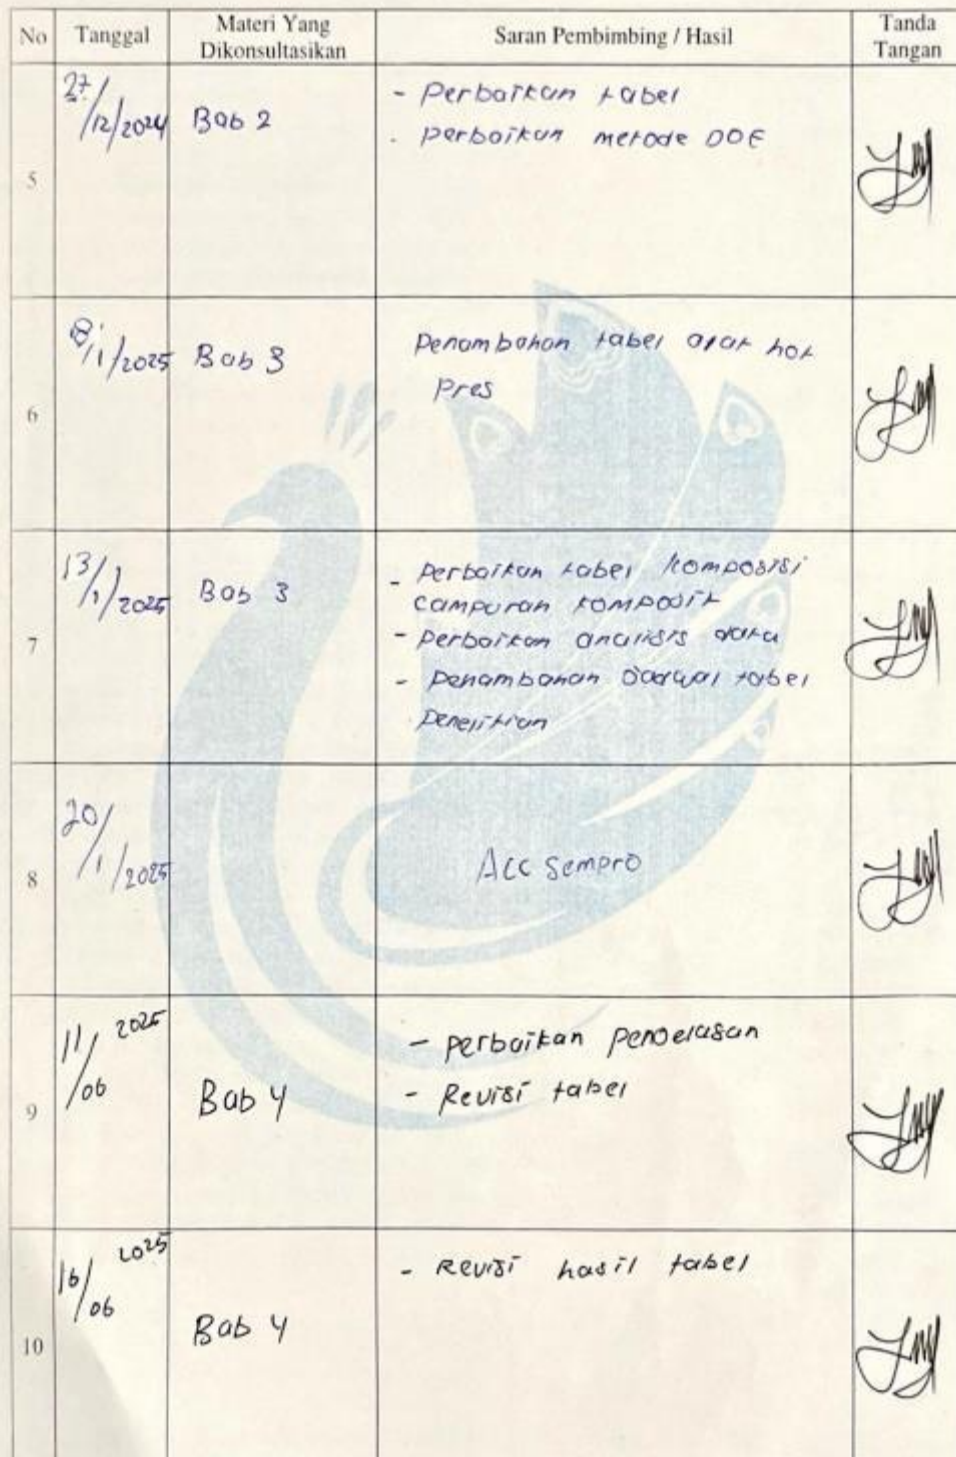 No Tanggal Materi Yang Dikonsultasikan Saran Pembimbing / Hasil Tanda Tangan
5 27/12/2024 Bab 2 - Perbaikan tabel
. perbaikan metode DOE
6 8/1/2025 Bab 3 Penambahan tabel alat hot
Pres
7 13/1/2025 Bab 3 - Perbaikan tabel komposisi
campuran komposit
- Perbaikan analisis data
- Penambahan Jadwal tabel
Penelitian
8 20/1/2025 Acc Sempro
9 11/06 2025 Bab 4 - perbaikan penjelasan
- Revisi tabel
10 16/06 2025 Bab 4 - Revisi hasil tabel